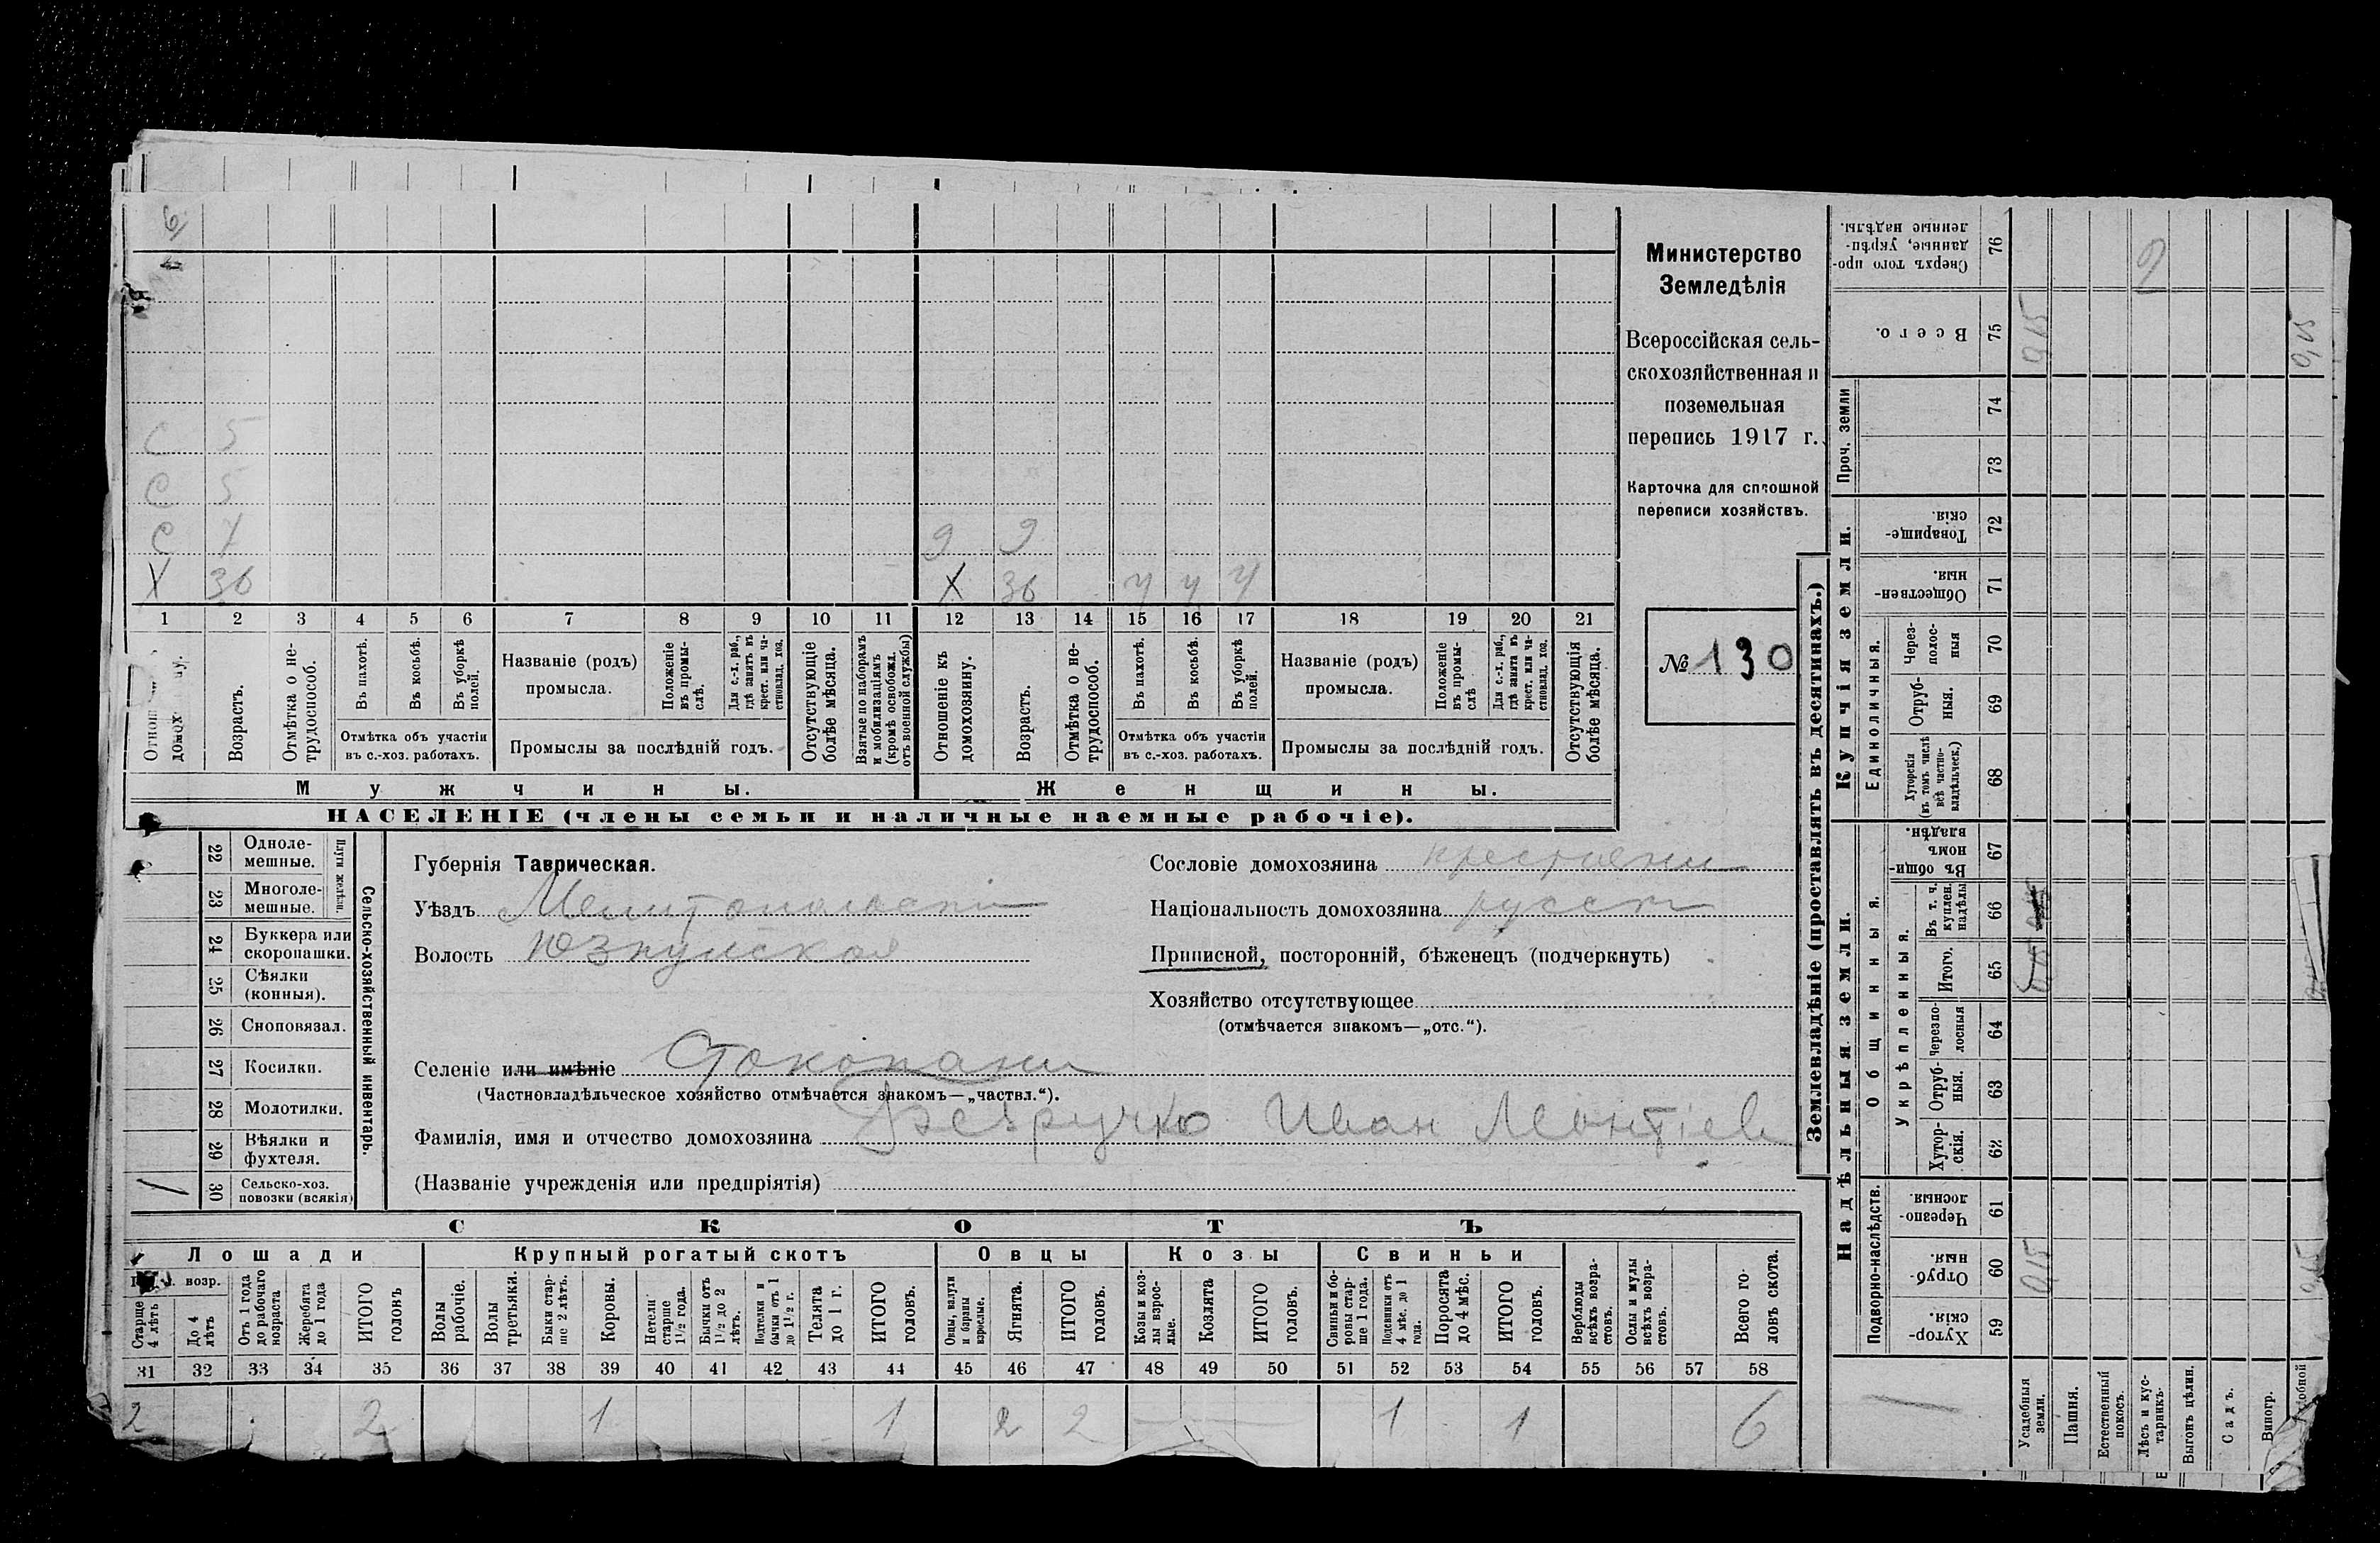 6
С 5
С 5
С 7 9 9
Х 36 Х 36 ч ч ч
1 2 3 4 5 6 7 8 9 10 11 12 13 14 15 16 17 18 19 20 21
Возрастъ.
Отмѣтка о не-
трудоспособ.
Въ пахотѣ.
Въ косьбѣ.
Въ уборкѣ
полей.
Отмѣтка объ участіи
въ с.-хоз. работахъ.
Названіе (родъ)
промысла.
Положеніе
въ промы-
слѣ.
Для с.-х. раб.,
гдѣ занятъ въ
крест. или ча-
стновлад. хоз.
Промыслы за послѣдній годъ.
Отсутствующіе
болѣе мѣсяца.
Взятые по наборамъ
и мобилизаціямъ
(кромѣ освобожд.
отъ военной службы)
Отношеніе къ
домохозяину.
Возрастъ.
Отмѣтка о не-
трудоспособ.
Въ пахотѣ.
Въ косьбѣ.
Въ уборкѣ
полей.
Отмѣтка объ участіи
въ с.-хоз. работахъ.
Названіе (родъ)
промысла.
Положеніе
въ промы-
слѣ
Для с.-х. раб.,
гдѣ занята въ
крест. или ча-
стновлад. хоз.
Промыслы за послѣдній годъ.
Отсутствующія
болѣе мѣсяца.
Мужчины.
Женщины.
НАСЕЛЕНІЕ (члены семьи и наличные наемные рабочіе).
Министерство
Земледѣлія
Всероссійская сель-
скохозяйственная и
поземельная
перепись 1917 г.
Карточка для сплошной
переписи хозяйствъ.
№ 130
22 Одноле-
мешные.
23 Многоле-
мешные.
Плуги желѣзн.
24 Буккера или
скоропашки.
25 Сѣялки
(конныя).
26 Сноповязал.
27 Косилки.
28 Молотилки.
29 Вѣялки и
фухтеля.
1 30 Сельско-хоз.
повозки (всякія)
Сельско-хозяйственный инвентарь.
Губернія Таврическая.
Уѣздъ Мелитопольскій
Волость Юзкуйская
Сословіе домохозяина крестьянин
Національность домохозяина русск
Приписной, посторонній, бѣженецъ (подчеркнуть)
Хозяйство отсутствующее
(отмѣчается знакомъ—„отс.“).
Селеніе или имѣніе Стокопани
(Частновладѣльческое хозяйство отмѣчается знакомъ—„частвл.“).
Фамилія, имя и отчество домохозяина Иван Леонтіев
(Названіе учрежденія или предпріятія)
СКОТЪ
Лошади
возр.
Старше
4 лѣтъ
До 4
лѣтъ
Отъ 1 года
до рабочаго
возраста
Жеребята
до 1 года
ИТОГО
головъ
Крупный рогатый скотъ
Волы
рабочіе.
Волы
третьяки.
Быки стар-
ше 2 лѣтъ.
Коровы.
Нетели
старше
1½ года.
Бычки отъ
1½ до 2
лѣтъ.
Подтелки и
бычки отъ 1
до 1½ г.
Телята
до 1 г.
ИТОГО
головъ.
Овцы
Овцы, валухи
и бараны
взрослые.
Ягнята.
ИТОГО
головъ.
Козы
Козы и коз-
лы взрос-
лые.
Козлята
ИТОГО
головъ.
Свиньи
Свиньи и бо-
ровы стар-
ше 1 года.
Подсвинки отъ
4 мѣс. до 1
года.
Поросята
до 4 мѣс.
ИТОГО
головъ.
Верблюды
всѣхъ возра-
стовъ.
Ослы и мулы
всѣхъ возра-
стовъ.
Всего го-
ловъ скота.
31 32 33 34 35 36 37 38 39 40 41 42 43 44 45 46 47 48 49 50 51 52 53 54 55 56 57 58
2 2 1 1 2 2 1 1 6
Землевладѣніе (проставлять въ десятинахъ.)
Надѣльныя земли.
Купчія земли.
Проч. земли
Подворно-наслѣдств.
Общинныя.
Укрѣпленныя.
Единоличныя.
Сверхъ того про-
данные, укрѣп-
ленные надѣлы.
76
Всего.
75
74
73
Товарище-
скія.
72
Обществен-
ныя.
71
Через-
полос-
ныя
70
Отруб-
ныя.
69
Хуторскія
(въ томъ числѣ
всѣ частно-
владѣльческ.)
68
Въ общи-
номъ
владѣн.
67
Въ т. ч.
куплен.
надѣлы
66
Итого.
65
Черезпо-
лосныя
64
Отруб-
ныя.
63
Хутор-
скія.
62
Черезпо-
лосныя.
61
Отруб-
ныя.
60
Хутор-
скія.
59
Усадебныя
земли.
Пашня.
Естественный
покосъ.
Лѣсъ и кус-
тарникъ.
Выгонъ цѣлин.
Садъ.
Виногр.
0,15
2
0,15
0,15
0,15